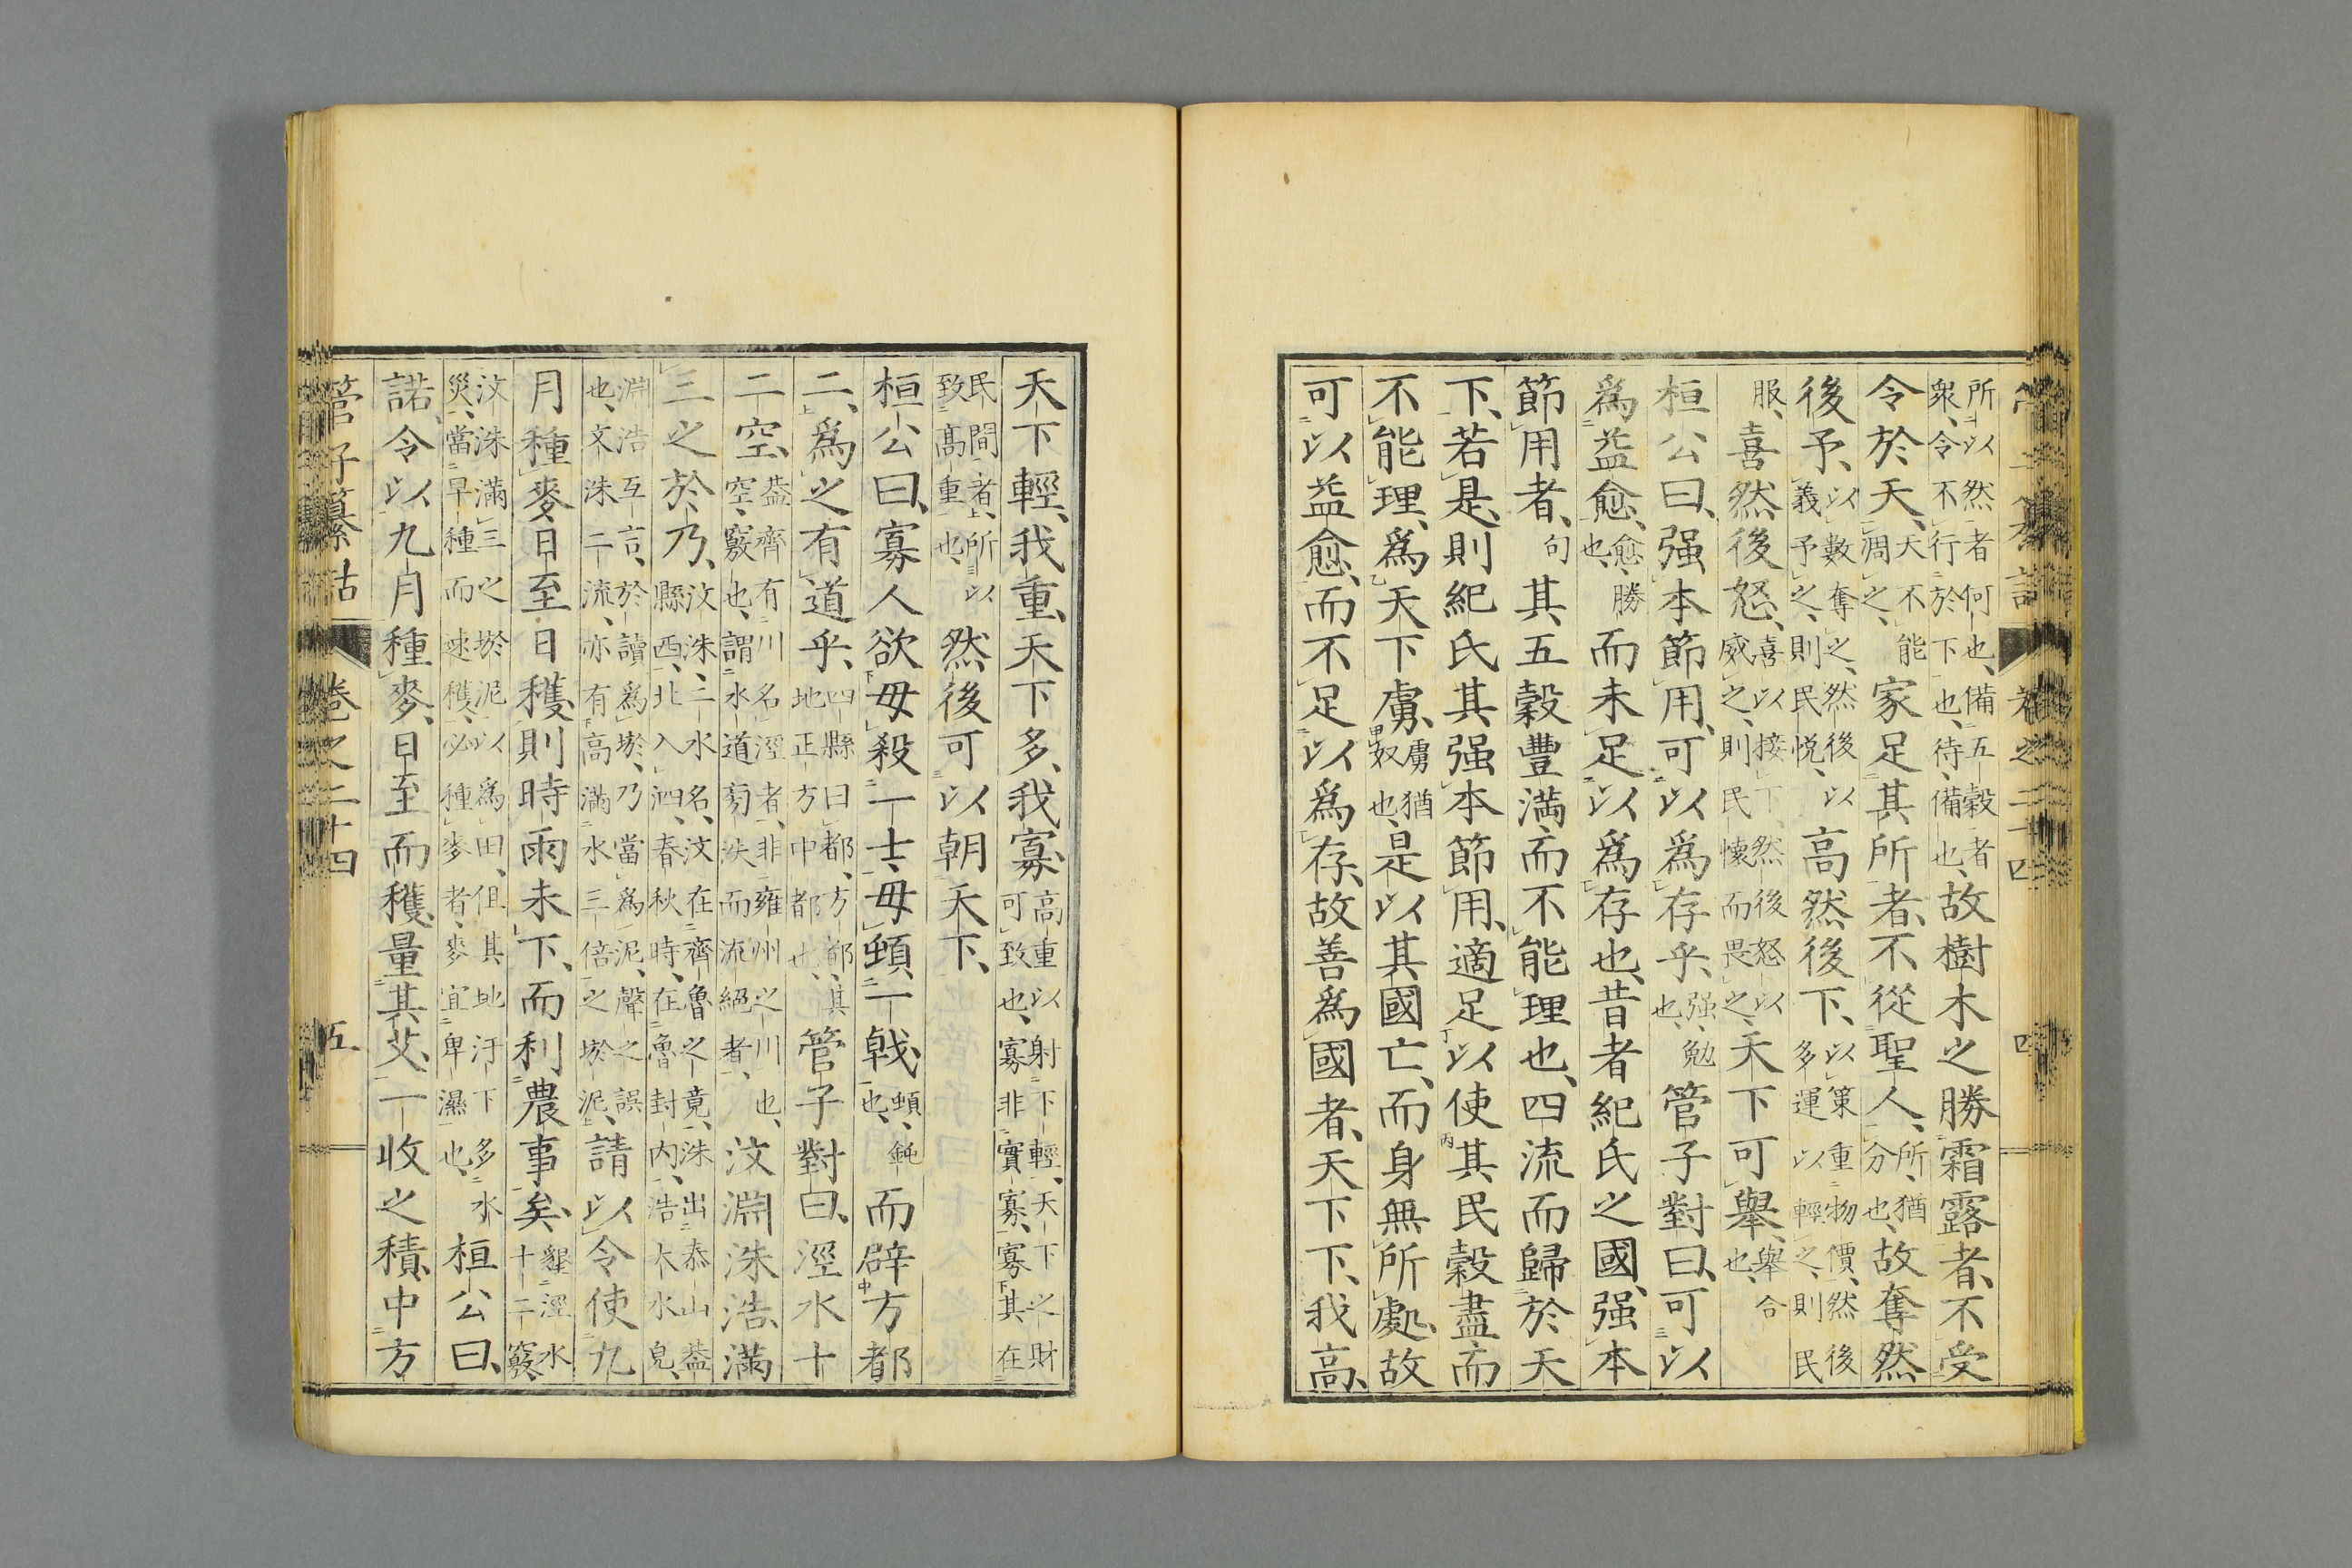 所以然者何也、備五穀者
衆、令不行於下也、待、備也、故樹木之勝霜露者、不受
令於天、天不能凋之、家足其所者、不從聖人、所、猶分也、故奪然
後予、以數奪之、然後以義予之、則民悦、高然後下、以策重物價、然後多運以輕之、則民
服、喜然後怒、喜以接下、然後怒以威之、則民懷而畏之、天下可舉、舉合也、
桓公曰、强本節用、可以爲存乎、强、勉也、管子對曰、可以
爲益愈、愈、勝也、而未足以爲存也、昔者紀氏之國、强本
節用者、句其五穀豐満而不能理也、四流而歸於天
下、若是、則紀氏其强本節用、適足以使其民穀盡而
不能理、爲天下虜、虜猶奴也、是以其國亡、而身無所處、故
可以益愈、而不足以爲存、故善爲國者、天下下、我高、
天下輕、我重、天下多、我寡、高重以射下輕、天下之財可致也、寡非實寡、寡其在
民間者、所以致高重也、然後可以朝天下、
桓公曰、寡人欲毋殺一士、毋頓一戟、頓、鈍也、而辟方都
二、爲之有道乎、四縣曰都、方都、其地正方中都也、管子對曰、涇水十
二空、葢齊有川名涇者、非雍州之川也、空、竅也、謂水道旁決而流絕者、汶淵洙浩滿
三之於乃、汶洙、二水名、汶在齊魯之竟、洙出泰山葢縣西、北入泗、春秋時、在魯封内、浩大水皃、
淵浩互言、於讀爲淤、乃當爲泥、聲之誤也、文洙二流、亦有高滿水三倍之淤泥、請以令使九
月種麥、日至日穫、則時雨未下、而利農事矣、壅涇水十二竅、
汶洙滿三之淤泥以爲田、但其地汙下多水災、當早種而速穫、必種麥者、麥宜卑濕也、桓公曰、
諾、令以九月種麥、日至而穫、量其艾、一收之積、中方
管子纂詁 卷之二十四 五